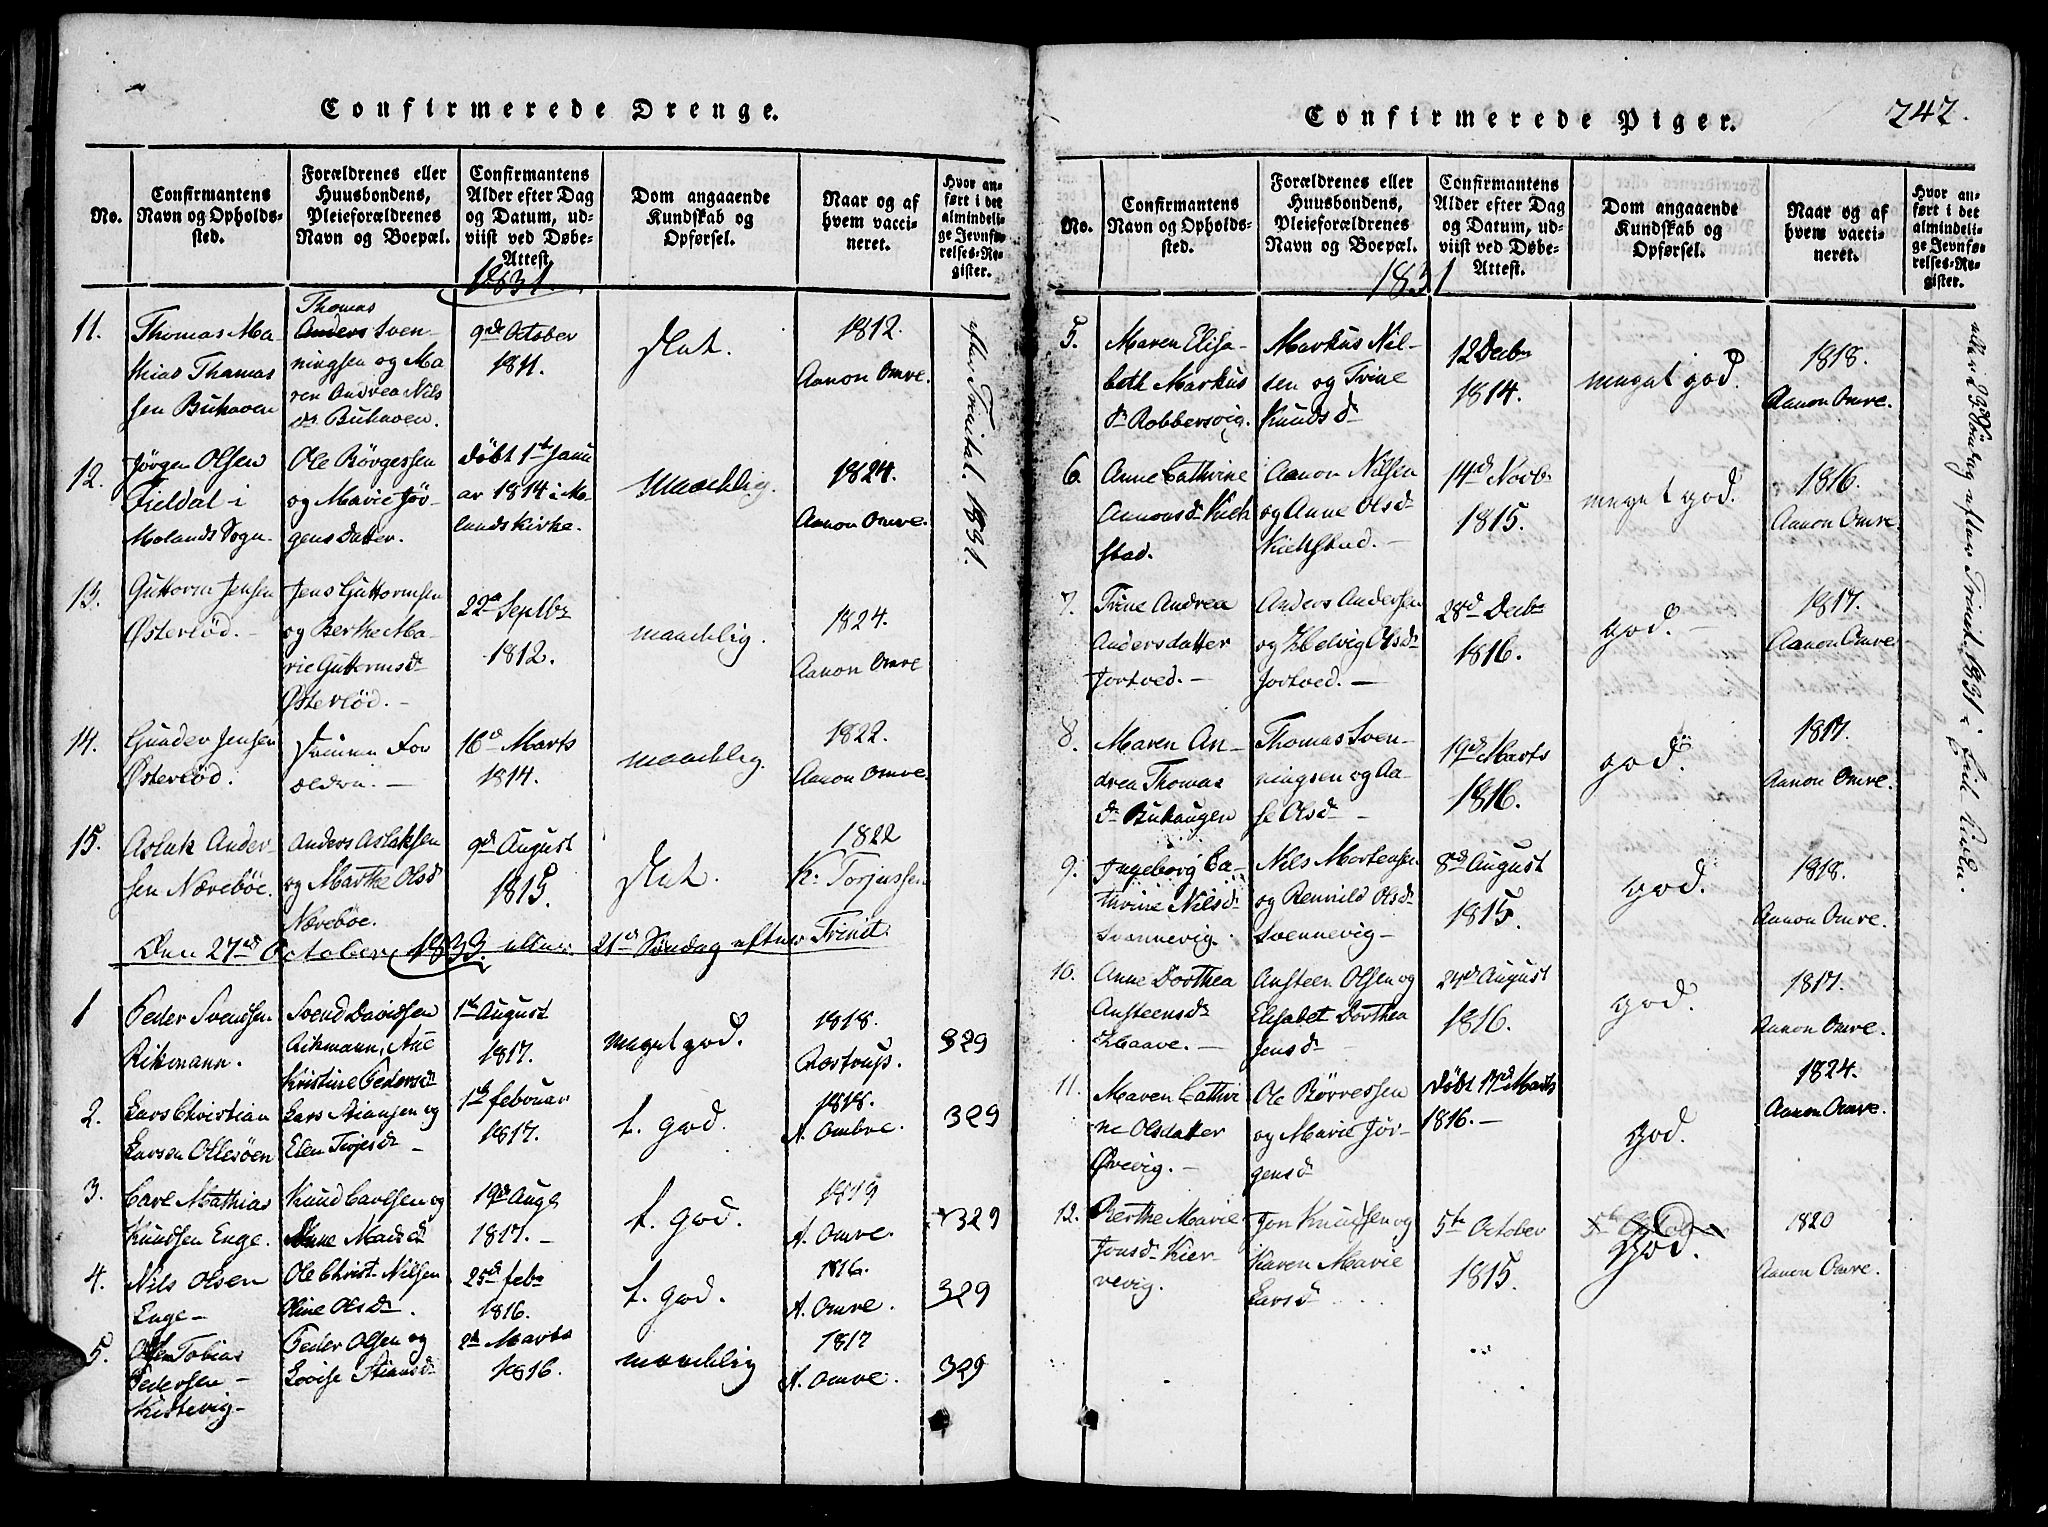 Confirmerede Drenge.
No.
Confirmantens
Navn og Opholds-
sted.
Forældrenes eller
Huusbondens,
Pleieforældrenes
Navn og Boepæl.
Confirmantens
Alder efter Dag
og Datum, ud-
viist ved Døbe-
Attest.
Dom angaaende
Kundskab og
Opførsel.
Naar og af
hvem vacci-
neret.
Hvor an-
ført i det
almindeli-
ge Jevnfø-
relses-Re-
gister.
1831.
11.
Thomas Ma-
thias Thomas
sen Buhaven
Thomas
Anders Sven-
ningsen og Ma
ren Andrea Nils
dr Buhaven.
9de October
1811.
slet.
1812.
Aanon Omre.
12.
Jørgen Olsen
Fieldal i
Molands Sogn.
Ole Børgessen
og Marie Jør-
gens Datter.
døbt 1te Janu
ar 1814 i Mo-
lands Kirke.
maadelig.
1824.
Aanon Omre.
13.
Guttorm Jensen
Østeréöd. -
Jens Guttormsen
og Berthe Ma-
rie Guttormsdr
Østeréöd. -
22de Septbr
1812.
maadelig.
1824.
Aanon Omre
14.
Gunder Jensen
Østeréöd.
Samme For
ældre. -
16de Marts
1814.
maadelig.
1822.
Aanon Omre.
15.
Aslak Ander-
sen Nærebøe.
Anders Aslaksen
og Marthe Olsdr
Nærebøe.
9de August
1815.
slet.
1822
K. Torjussen
efter Trinitat. 1831.
Den 27de October 1833. 21de Søndag efter Trinit.
1
Peder Svendsen
Rikmann.
Svend Davidsen
Rikmann, Ane
Kristine Pedersdr
1te August
1817.
meget god.
1818.
Aastrup.
329
2.
Lars Christian
Larsen Ollesöen
Lars Stiansen og
Elen Terjesdr -
1te februar
1817.
t. god.
1818.
A. Ombre.
329
3.
Carl Mathias
Knudsen Enge.
Knud Carlsen og
Anne Madsdr
19de Augs
1817. -
t. god.
1819
A. Omre.
329
4.
Nils Olsen
Enge -
Ole Christ. Nilsen
Oline Olsdr.
25de febr
1816.
t. god.
1816.
A. Omre.
329
5.
Ole Tobias
Pedersen -
Kistevig -
Peder Olsen og
Lovise Stiansdr
2de Marts
1816.
maadelig
1817
A. Omre.
329
Confirmerede Piger.
242.
No.
Confirmantens
Navn og Opholds-
sted.
Forældrenes eller
Huusbondens,
Pleieforældrenes
Navn og Boepæl.
Confirmantens
Alder efter Dag
og Datum, ud-
viist ved Døbe-
Attest.
Dom angaaende
Kundskab og
Opførsel.
Naar og af
hvem vacci-
neret.
Hvor an-
ført i det
almindeli-
ge Jevnfø-
relses-Re-
gister.
1831
5.
Maren Elisa-
beth Markus
dr Robbersvig.
Markus Nil-
sen og Trine
Knudsdr
12 Decbr
1814.
meget god.
1818.
Aanon Omre.
6.
Anne Cathrine
Aanonsdr Kieb
stad.
Aanon Nilsen
og Anne Olsdr
Kiebstad. -
14de Novbr
1815.
meget god.
1816.
Aanon Omre.
7.
Trine Andrea
Andersdatter
Jortved. -
Anders Andersen
og Helvig Olsdr
Jortved. -
28de Decbr
1816.
god. -
1817.
Aanon Omre.
8.
Maren An-
drea Thomas
dr Buhaugen
Thomas Sven-
ningsen og Aa-
se Olsdr -
19de Marts
1816.
god.
1817.
Aanon Omre.
9.
Ingeborg Ca-
thrine Nilsdr
Svennevig.
Nils Mortensen
og Rennild Olsdr
Svennevig -
8de August
1815.
god.
1818.
Aanon Omre.
10.
Anne Dorthea
Ansteensdr
Haave. -
Ansteen Olsen og
Elisabet Dorthea
Jensdr -
24de August
1816.
god.
1817.
Aanon Omre.
11.
Maren Cathri
ne Olsdatter
Örevig. -
Ole Börressen
og Marie Jør-
gensdr
døbt 17de Marts
1816. -
god.
1824.
Aanon Omre.
12.
Berthe Marie
Jonsdr Kier-
revig.
Jon Knudsen og
Karen Marie
Larsdr
5te October
1815.
5te October
god.
1820
Aanon Omre.
Søndag efter Trinit. 1831 i